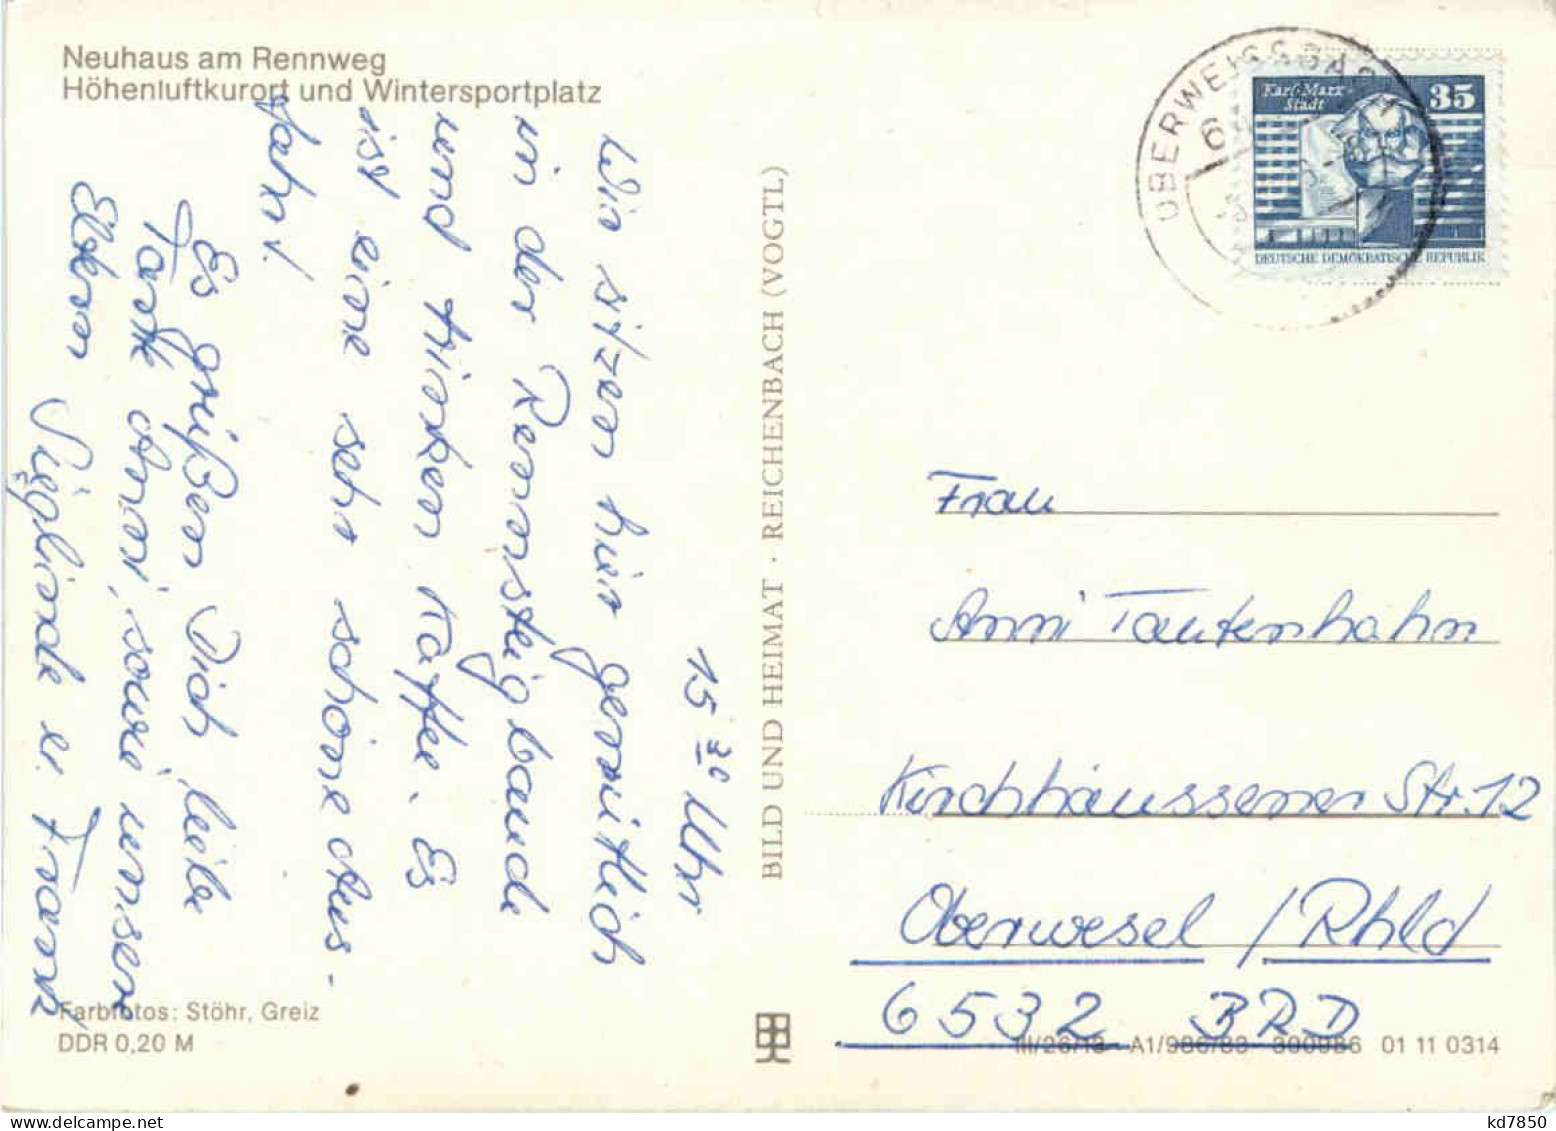 Neuhaus am Rennweg
Höhenluftkurort und Wintersportplatz
15 30 Uhr
Wir sitzen hier gemütlich
in der Rennsteigbaude
und trinken Kaffee. Es
ist eine sehr schöne Aus-
Es grüßen Dich liebe
Tante Anni, sowie unsere
Eltern Sieglinde u. Frank
BILD UND HEIMAT · REICHENBACH (VOGTL)
Farbfotos: Stöhr, Greiz
DDR 0,20 M
OBERWEISSBACH
Karl-Marx-
Stadt
35
DEUTSCHE DEMOKRATISCHE REPUBLIK
Frau
Anni Tautenhahn
Kirchhäussener Str. 12
Oberwesel / Rhld
6532 BRD
III/26/13 A1/986/83 300986 01 11 0314
kd7850